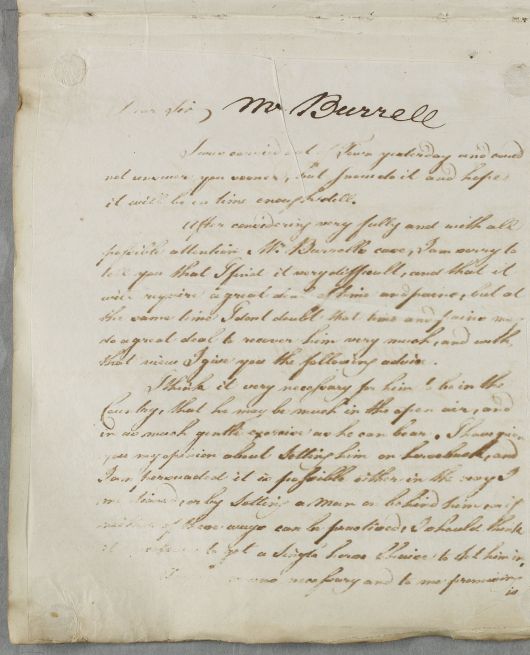 Dear Sir, Mr Burrell
I was carried out of Town yesterday and could
not answer you sooner, but I now do it and hope
it will be in time enough still.
After considering very fully and with all
possible attention Mr Burrell's case, I am sorry to
tell you that I find it very difficult, and that it
will require a great deal of time and pains, but at
the same time I dont doubt that time and pains may
do a great deal to recover him very much, and with
that view I give you the following advice.
I think it very necessary for him to be in the
Country, that he may be much in the open air, and
in as much gentle exercise as he can bear. I have given
you my opinion about setting him on horseback, and
I am persuaded it is possible either in the way I
or by setting a man on behind him, or if
neither of these ways can be practised, I should think
it to get a single horse Chaise to set him in,
necessary and to me promising
is